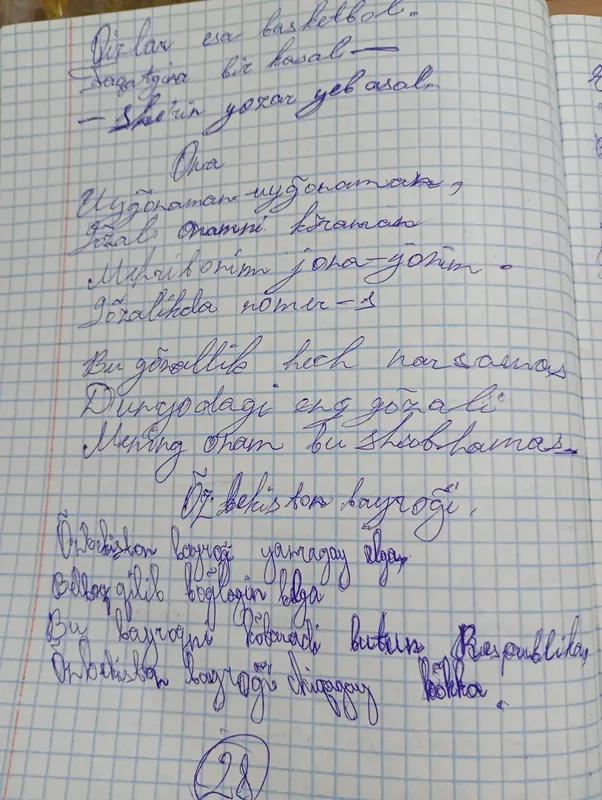 Qizlar esa basketbol.
Faqatgina bir kasal —
— She'rin yozar yeb asal.
Ona
Uyg̃onaman-uyg̃onaman,
Gõzal onamni kõraman
Mehribonim jona-jonim.
Gõzalikda nomer-1
Bu gõzallik hech narsamas
Dunyodagi eng gõzali
Mening onam bu shubhamas.
Õzbekiston bayrog̃i.
Õzbekiston bayrog̃i yanragay elga,
qilib bog̃lagin belga
Bu bayroqni kõtaradi butun Respublika,
Õzbekiston bayrog̃i chiqagay kõkka.
28